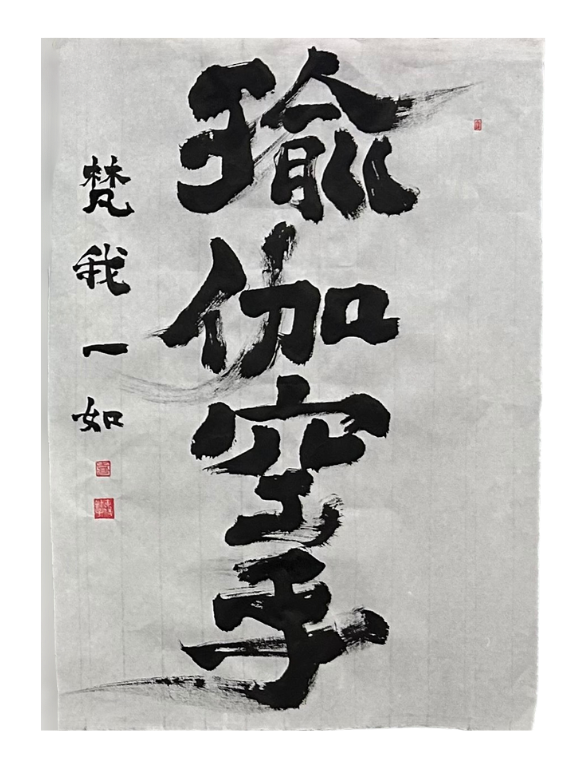 瑜伽空手
梵我一如